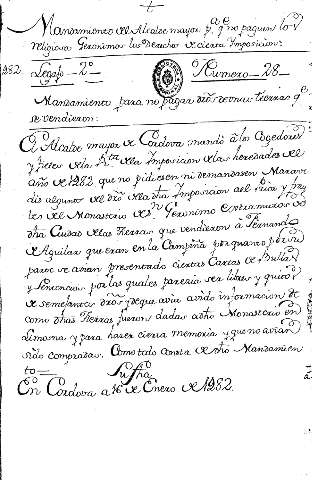 Mandamiento del Alcalde mayor p.a q.e no paguen los
Religiosos Geronimos los derechos de cierta Imposicion:
1982 Legajo-2º Numero-28-
Mandamiento para no pagar dros de unas tierras q.e
se vendieron:
El Alcalde mayor de Cordova mando â los Cogedores
y fieles de la Rta de la Imposicion de las heredades del
año de 1982 que no pidiesen ni demandasen Marave
dis alguno del dro de la dha Imposicion al Prior y fray
les del Monasterio de Sn Geronimo Extramuros de
dha Ciudad de las tierras que vendieron â Fernando
de Aguilar que eran en la Campiña por quanto por su
parte se avian presentado ciertas Cartas de Bulas
y Sentencias por las quales parecia ser libres y quitos
de semejantes dros; y de que avia avido informacion de
como dhas Tierras fueron dadas adho Monasterio en
Limosna y para hacer cierta memoria y que no avian
sido compradas. Como todo consta de dho Mandamien
to-
Su fha
En Cordova a 16 de Enero de 1982.